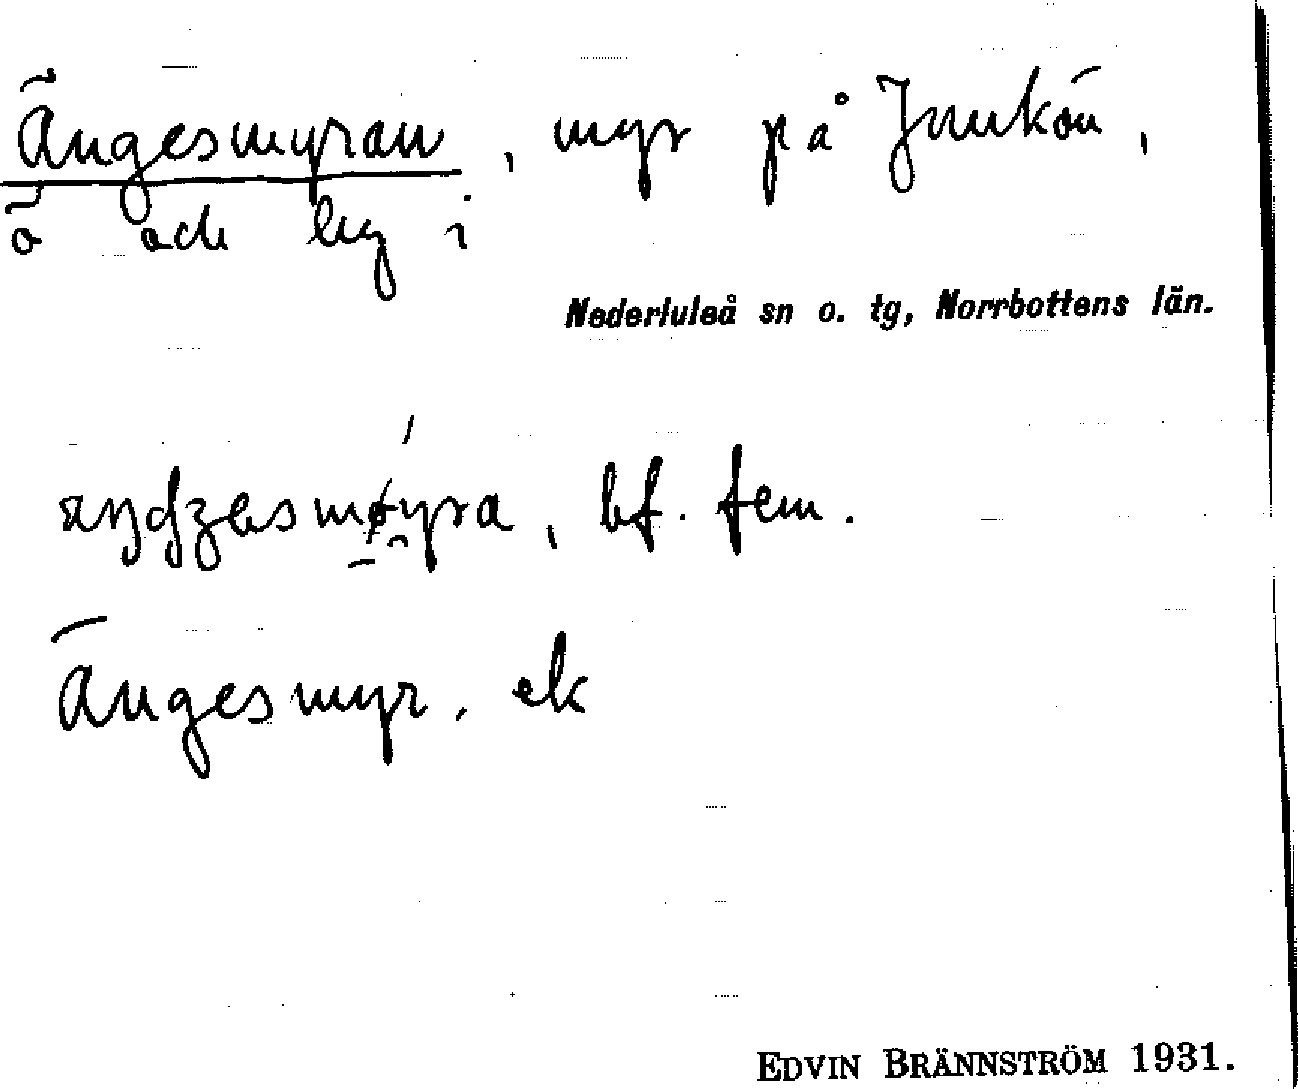 Ängesmyran, myr på Junkön,
ö och by i
Nederluleå sn o. tg, Norrbottens län.
bf. fem.
Ängesmyr. ek
EDVIN BRÄNNSTRÖM 1931.